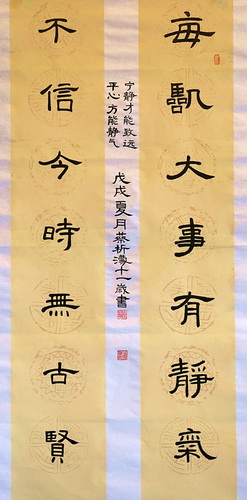 每臨大事有靜氣
宁静才能致远
平心方能静气
戊戌夏月蔡十一歲書
不信今時無古賢